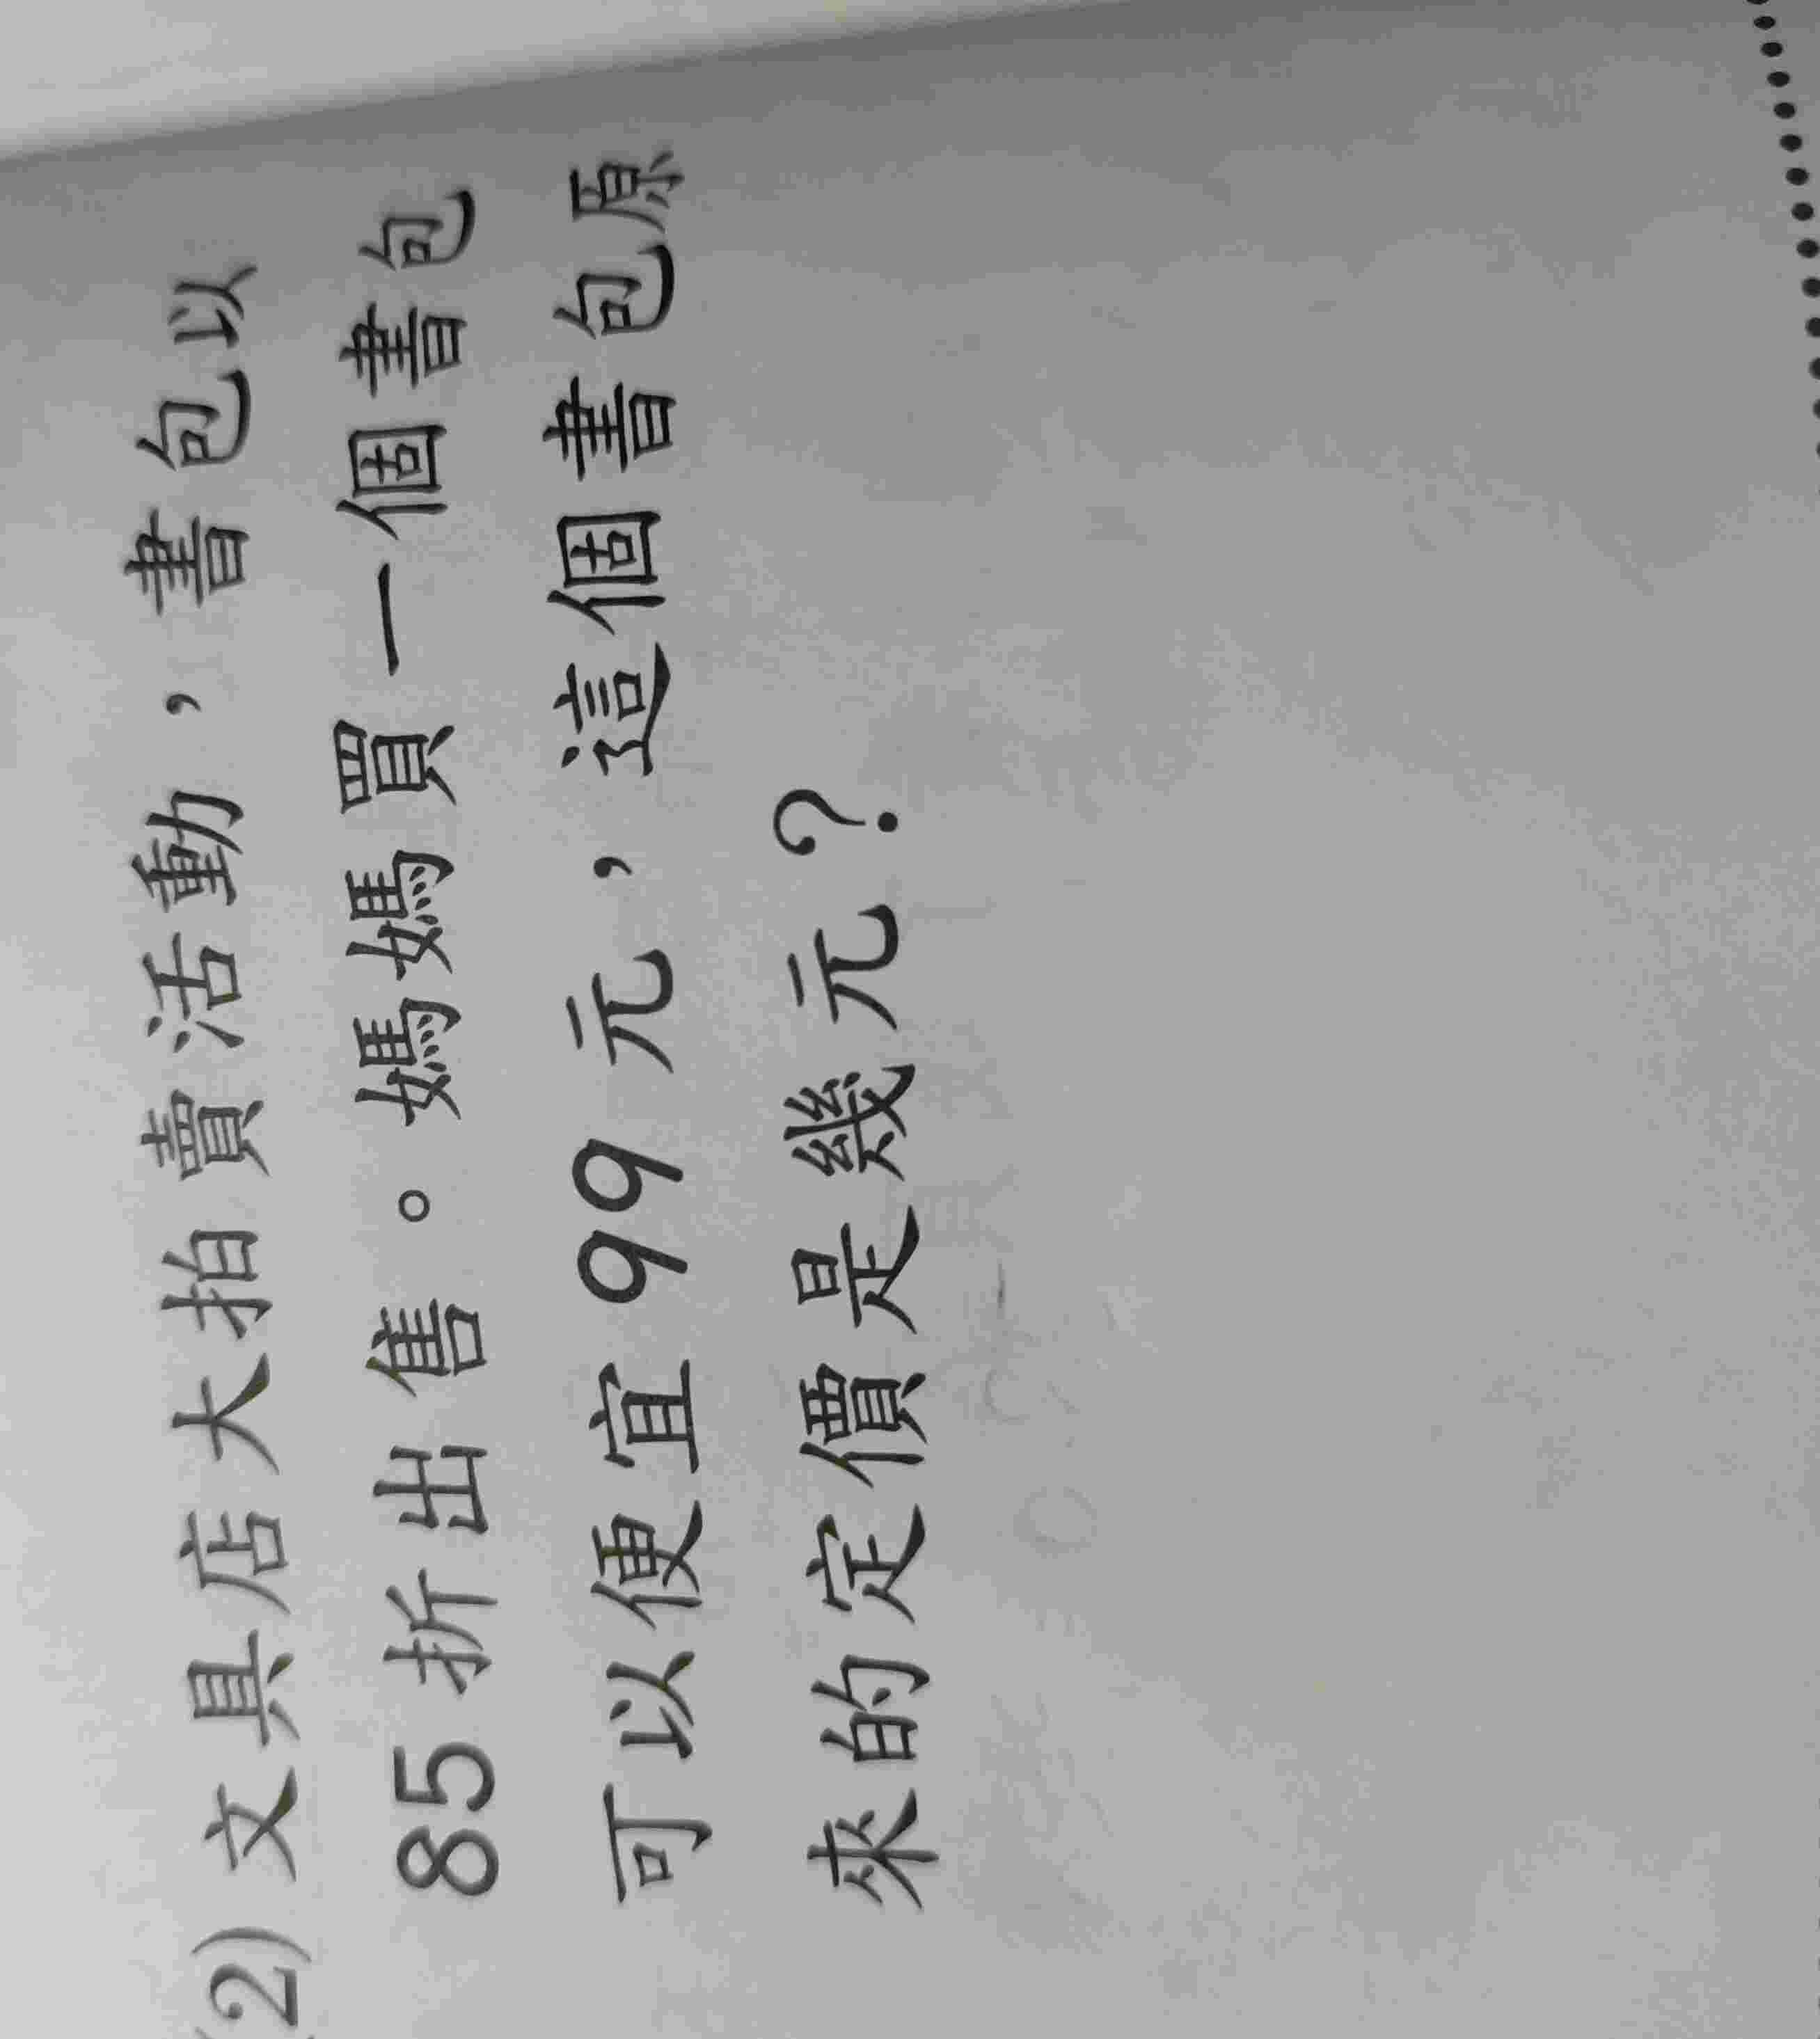 (2) 文具店大拍賣活動，書包以
85折出售。媽媽買一個書包
可以便宜99元，這個書包原
來的定價是幾元？